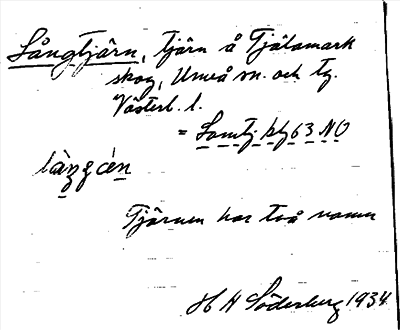 Långtjärn, tjärn å Tjälamark
skog, Umeå sn. och tg.
Västerb. l.
= Lomtj. bl 63 NO
Tjärnen har två namn
H A Söderberg 1934